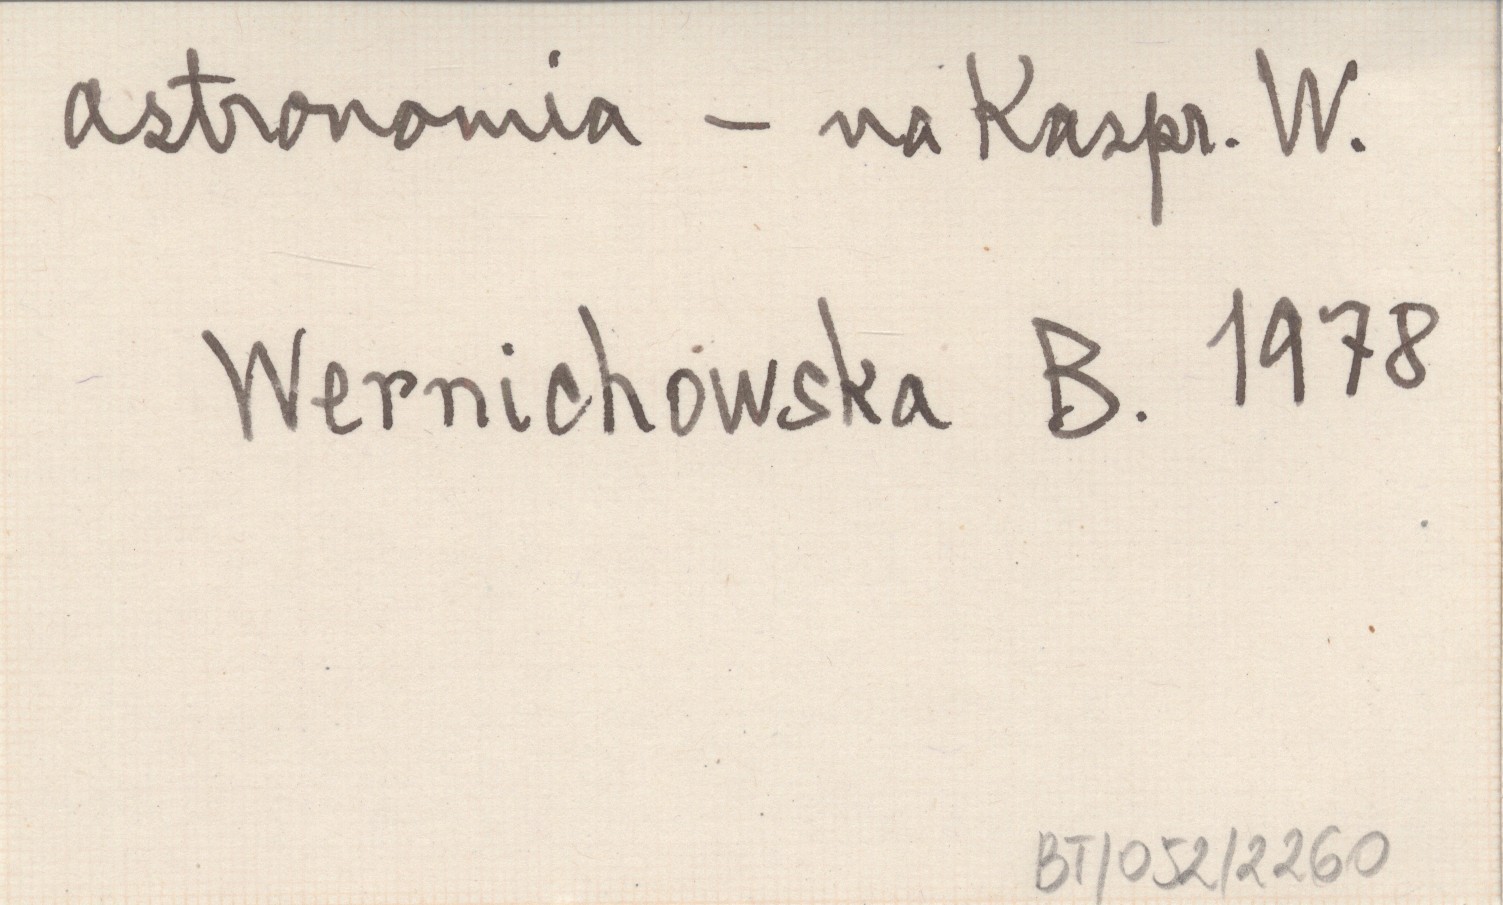 astronomia - na Kaspr. W.
Wernichowska B. 1978
BT/052/2260